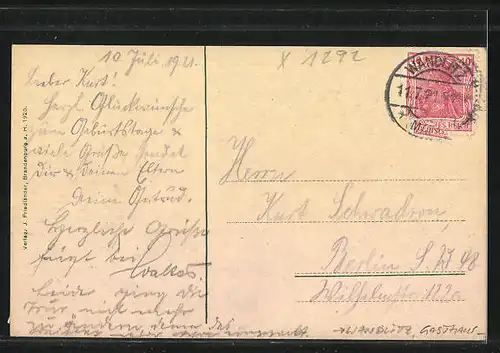 10 Juli 1921.
Lieber Kurt!
Herzl. Glückwünsche
zum Geburtstage &
viele Grüße sendet
Dir & Deinen Eltern
Deine Gertrud.
Herzliche Grüße
fügt bei
Leider ging die
nicht mehr
zu ändern, denn das
Verlag: J. Friedländer, Brandenburg a. H. 1920.
X 1292
WANDLITZ
11.7.21
(MARK)
Herrn
Kurt Schwadron,
Berlin S.W. 48
Wilhelmstr.
WANDLITZ, GASTHAUS